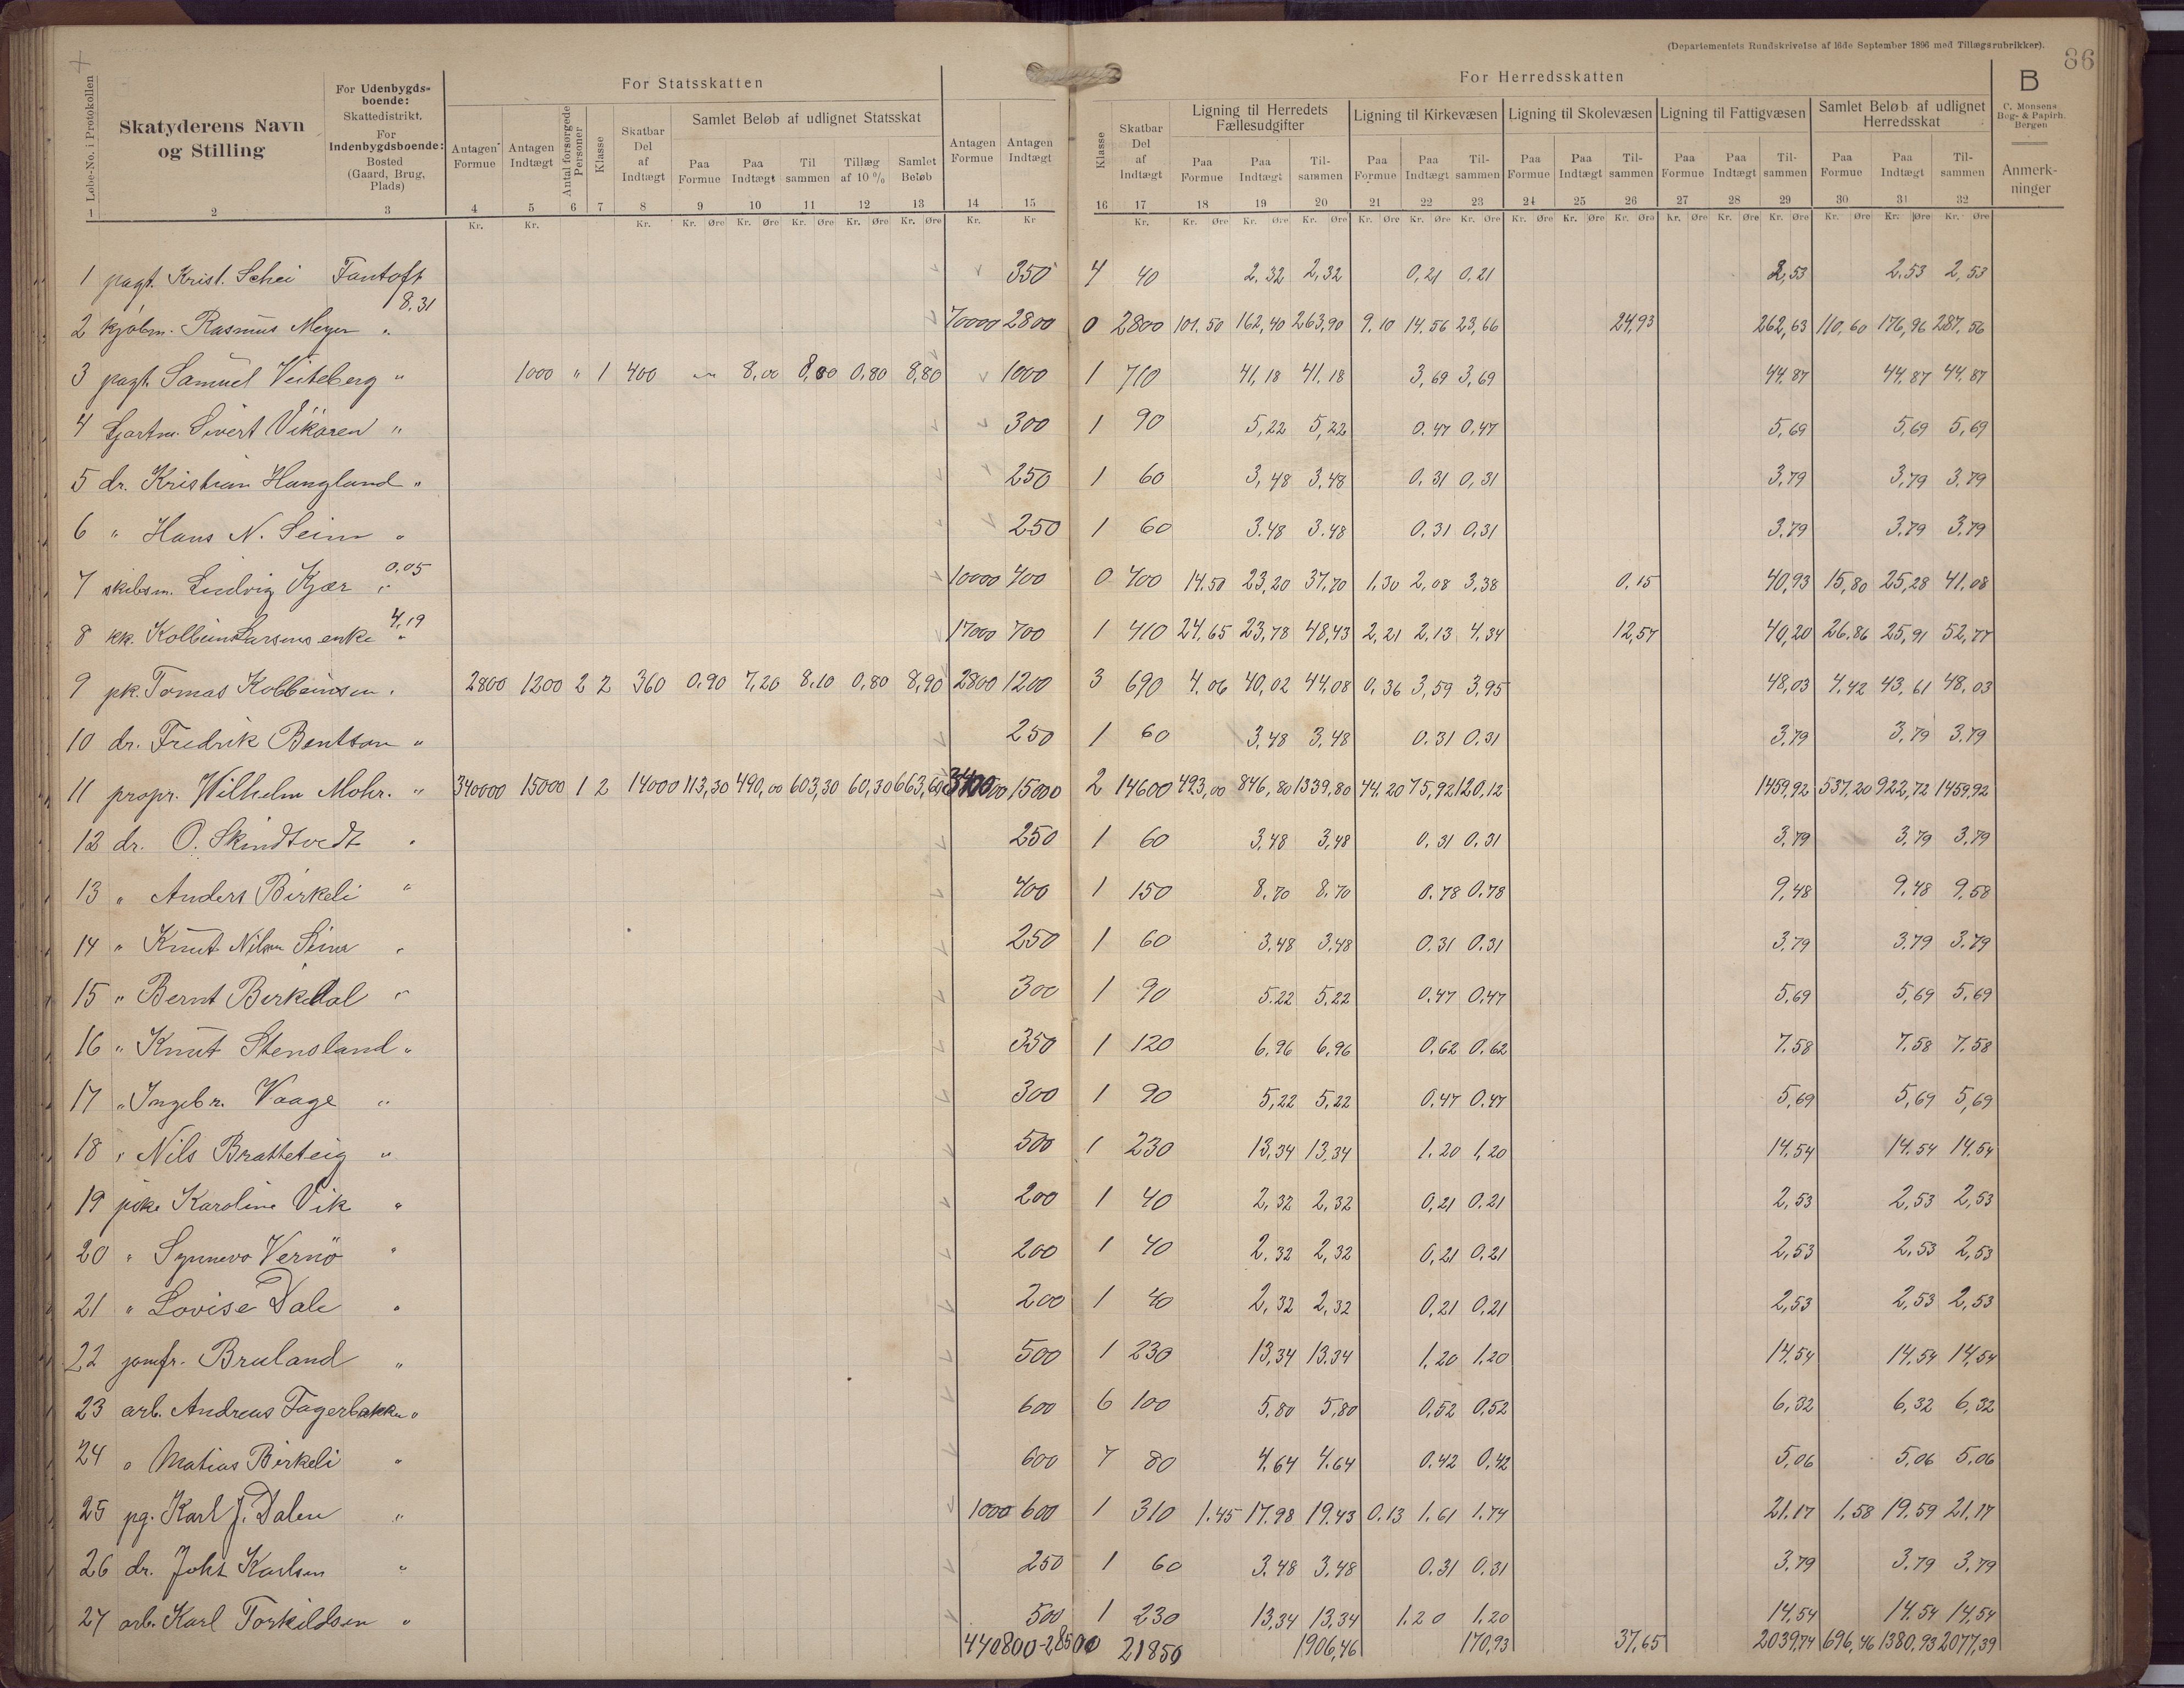 (Departementets Rundskrivelse af 16de September 1896 med Tillægsrubrikker).
86
B
C. Monsens Bog- & Papirh. Bergen
Anmerkninger
For Statsskatten
For Herredsskatten
Løbe-No. i Protokollen
Skatyderens Navn og Stilling
For Udenbygdsboende: Skattedistrikt. For Indenbygdsboende: Bosted (Gaard, Brug, Plads)
Antagen Formue
Antagen Indtægt
Antal forsørgede Personer
Klasse
Skatbar Del af Indtægt
Samlet Beløb af udlignet Statsskat
Paa Formue Paa Indtægt Til sammen Tillæg af 10 % Samlet Beløb
Antagen Formue Antagen Indtægt
Klasse
Skatbar Del af Indtægt
Ligning til Herredets Fællesudgifter
Paa Formue Paa Indtægt Tilsammen
Ligning til Kirkevæsen
Paa Formue Paa Indtægt Tilsammen
Ligning til Skolevæsen
Paa Formue Paa Indtægt Tilsammen
Ligning til Fattigvæsen
Paa Formue Paa Indtægt Tilsammen
Samlet Beløb af udlignet Herredsskat
Paa Formue Paa Indtægt Tilsammen
1 2 3 4 5 6 7 8 9 10 11 12 13 14 15 16 17 18 19 20 21 22 23 24 25 26 27 28 29 30 31 32
Kr. Kr. Kr. Kr. Øre Kr. Øre Kr. Øre Kr. Øre Kr. Øre Kr. Kr Kr. Kr. Øre Kr. Øre Kr. Øre Kr. Øre Kr. Øre Kr. Øre Kr. Øre Kr. Øre Kr. Øre Kr. Øre Kr. Øre Kr. Øre Kr. Øre Kr. Øre Kr. Øre
1 pagt. Krist. Schei Fantoft 350 4 40 2,32 2,32 0,21 0,21 2,53 2,53 2,53
8,31
2 kjøbm. Rasmus Meyer " 70000 2800 0 2800 101.50 162,40 263,90 9.10 14.56 23,66 24,93 262,63 110,60 176,96 287,56
3 pagt. Samuel Veiteberg " 1000 " 1 400 " 8,00 8,80 0,80 8,80 1000 1 710 41,18 41.18 3,69 3,69 44.87 44.87 44.87
4 Gartn. Sivert Vikøren " 300 1 90 5,22 5,22 0.47 0.47 5,69 5,69 5,69
5 dr. Kristian Haugland " 250 1 60 3,48 3,48 0.31 0,31 3,79 3,79 3.79
6 " Hans N. Seim " 250 1 60 3.48 3.48 0.31 0,31 3.79 3.79 3.79
0,05
7 skibsm. Ludvig Kjær " 10000 400 0 400 14.50 23,20 37,70 1,30 2,08 3,38 0,15 40,93 15,80 25,28 41,08
4,19
8 kk. Kolbein Larsens enke " 17000 700 1 410 24,65 23,78 48,43 2,21 2,13 4,34 12,57 40,20 26,86 25,91 52,77
9 pk. Tomas Kolbeinsen " 2800 1200 2 2 360 0,90 7,20 8,10 0,80 8,90 2800 1200 3 690 4,06 40,02 44,08 0,36 3,59 3,95 48,03 4,42 43,61 48,03
10 dr. Fredrik Bentson " 250 1 60 3,48 3,48 0.31 0.31 3,79 3,79 3.79
11 propr. Wilhelm Mohr. " 340000 15000 1 2 14000 113,30 490,00 603,30 60,30 663,60 340000 15000 2 14600 493,00 846,80 1339,80 44.20 75,92 120,12 1459,92 537,20 922,72 1459,92
12 dr. O. Skindtvedt " 250 1 60 3,48 3,48 0,31 0.31 3,79 3,79 3.79
13 " Anders Birkeli " 400 1 150 8,70 8,70 0.78 0.78 9,48 9,48 9,58
14 " Knut Nilsen Seim " 250 1 60 3,48 3,48 0.31 0.31 3,79 3.79 3.79
15 " Bernt Birkedal " 300 1 90 5.22 5,22 0,47 0,47 5,69 5,69 5,69
16 " Knut Stensland " 350 1 120 6,96 6,96 0.62 0.62 7.58 7.58 7.58
17 " Ingebr. Vaage " 300 1 90 5,22 5,22 0.47 0.47 5,69 5,69 5,69
18 " Nils Bratteteig " 500 1 230 13,34 13,34 1.20 1,20 14,54 14.54 14,54
19 pike Karoline Vik " 200 1 40 2,32 2,32 0,21 0.21 2,53 2,53 2,53
20 " Synneva Vernø " 200 1 40 2.32 2,32 0,21 0,21 2,53 2,53 2,53
21 " Lovise Dale " 200 1 40 2,32 2,32 0,21 0,21 2,53 2,53 2,53
22 jomfr. Bruland " 500 1 230 13,34 13.34 1,20 1,20 14,54 14,54 14,54
23 arb. Andreas Fagerbakke " 600 6 100 5,80 5,80 0,52 0,52 6,32 6,32 6,32
24 " Matias Birkeli " 600 7 80 4,64 4.64 0.42 0,42 5,06 5,06 5.06
25 pg. Karl J. Dalen " 1000 600 1 310 1.45 17.98 19.43 0.13 1.61 1.74 21.17 1,58 19.59 21,17
26 dr. Joh. Karlsen " 250 1 60 3.48 3,48 0.31 0,31 3,79 3.79 3,79
27 arb. Karl Torkildsen " 500 1 230 13,34 13,34 1.20 1,20 14,54 14.54 14,54
440800 - 28500 21850 1906,46 170,93 37,65 2039,74 696,46 1380,93 2077,39